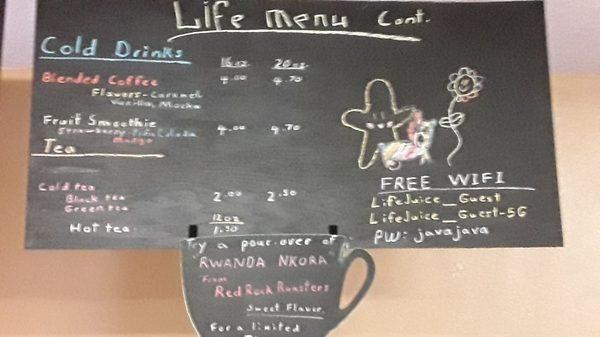 Life Menu Cont.
Cold Drinks 16oz 20oz
Blended Coffee 4.00 4.70
Flavors - Caramel
Vanilla, Mocha
Fruit Smoothie 4.00 4.70
Strawberry - Piña Colada
Mango
Tea
Cold tea
Black tea 2.00 2.50
Green tea
12oz
Hot tea 1.50
FREE WIFI
LifeJuice_Guest
LifeJuice_Guest-5G
PW: javajava
Try a pour-over of
RWANDA NKORA
From
Red Rock Roasters
Sweet Flavor
For a limited